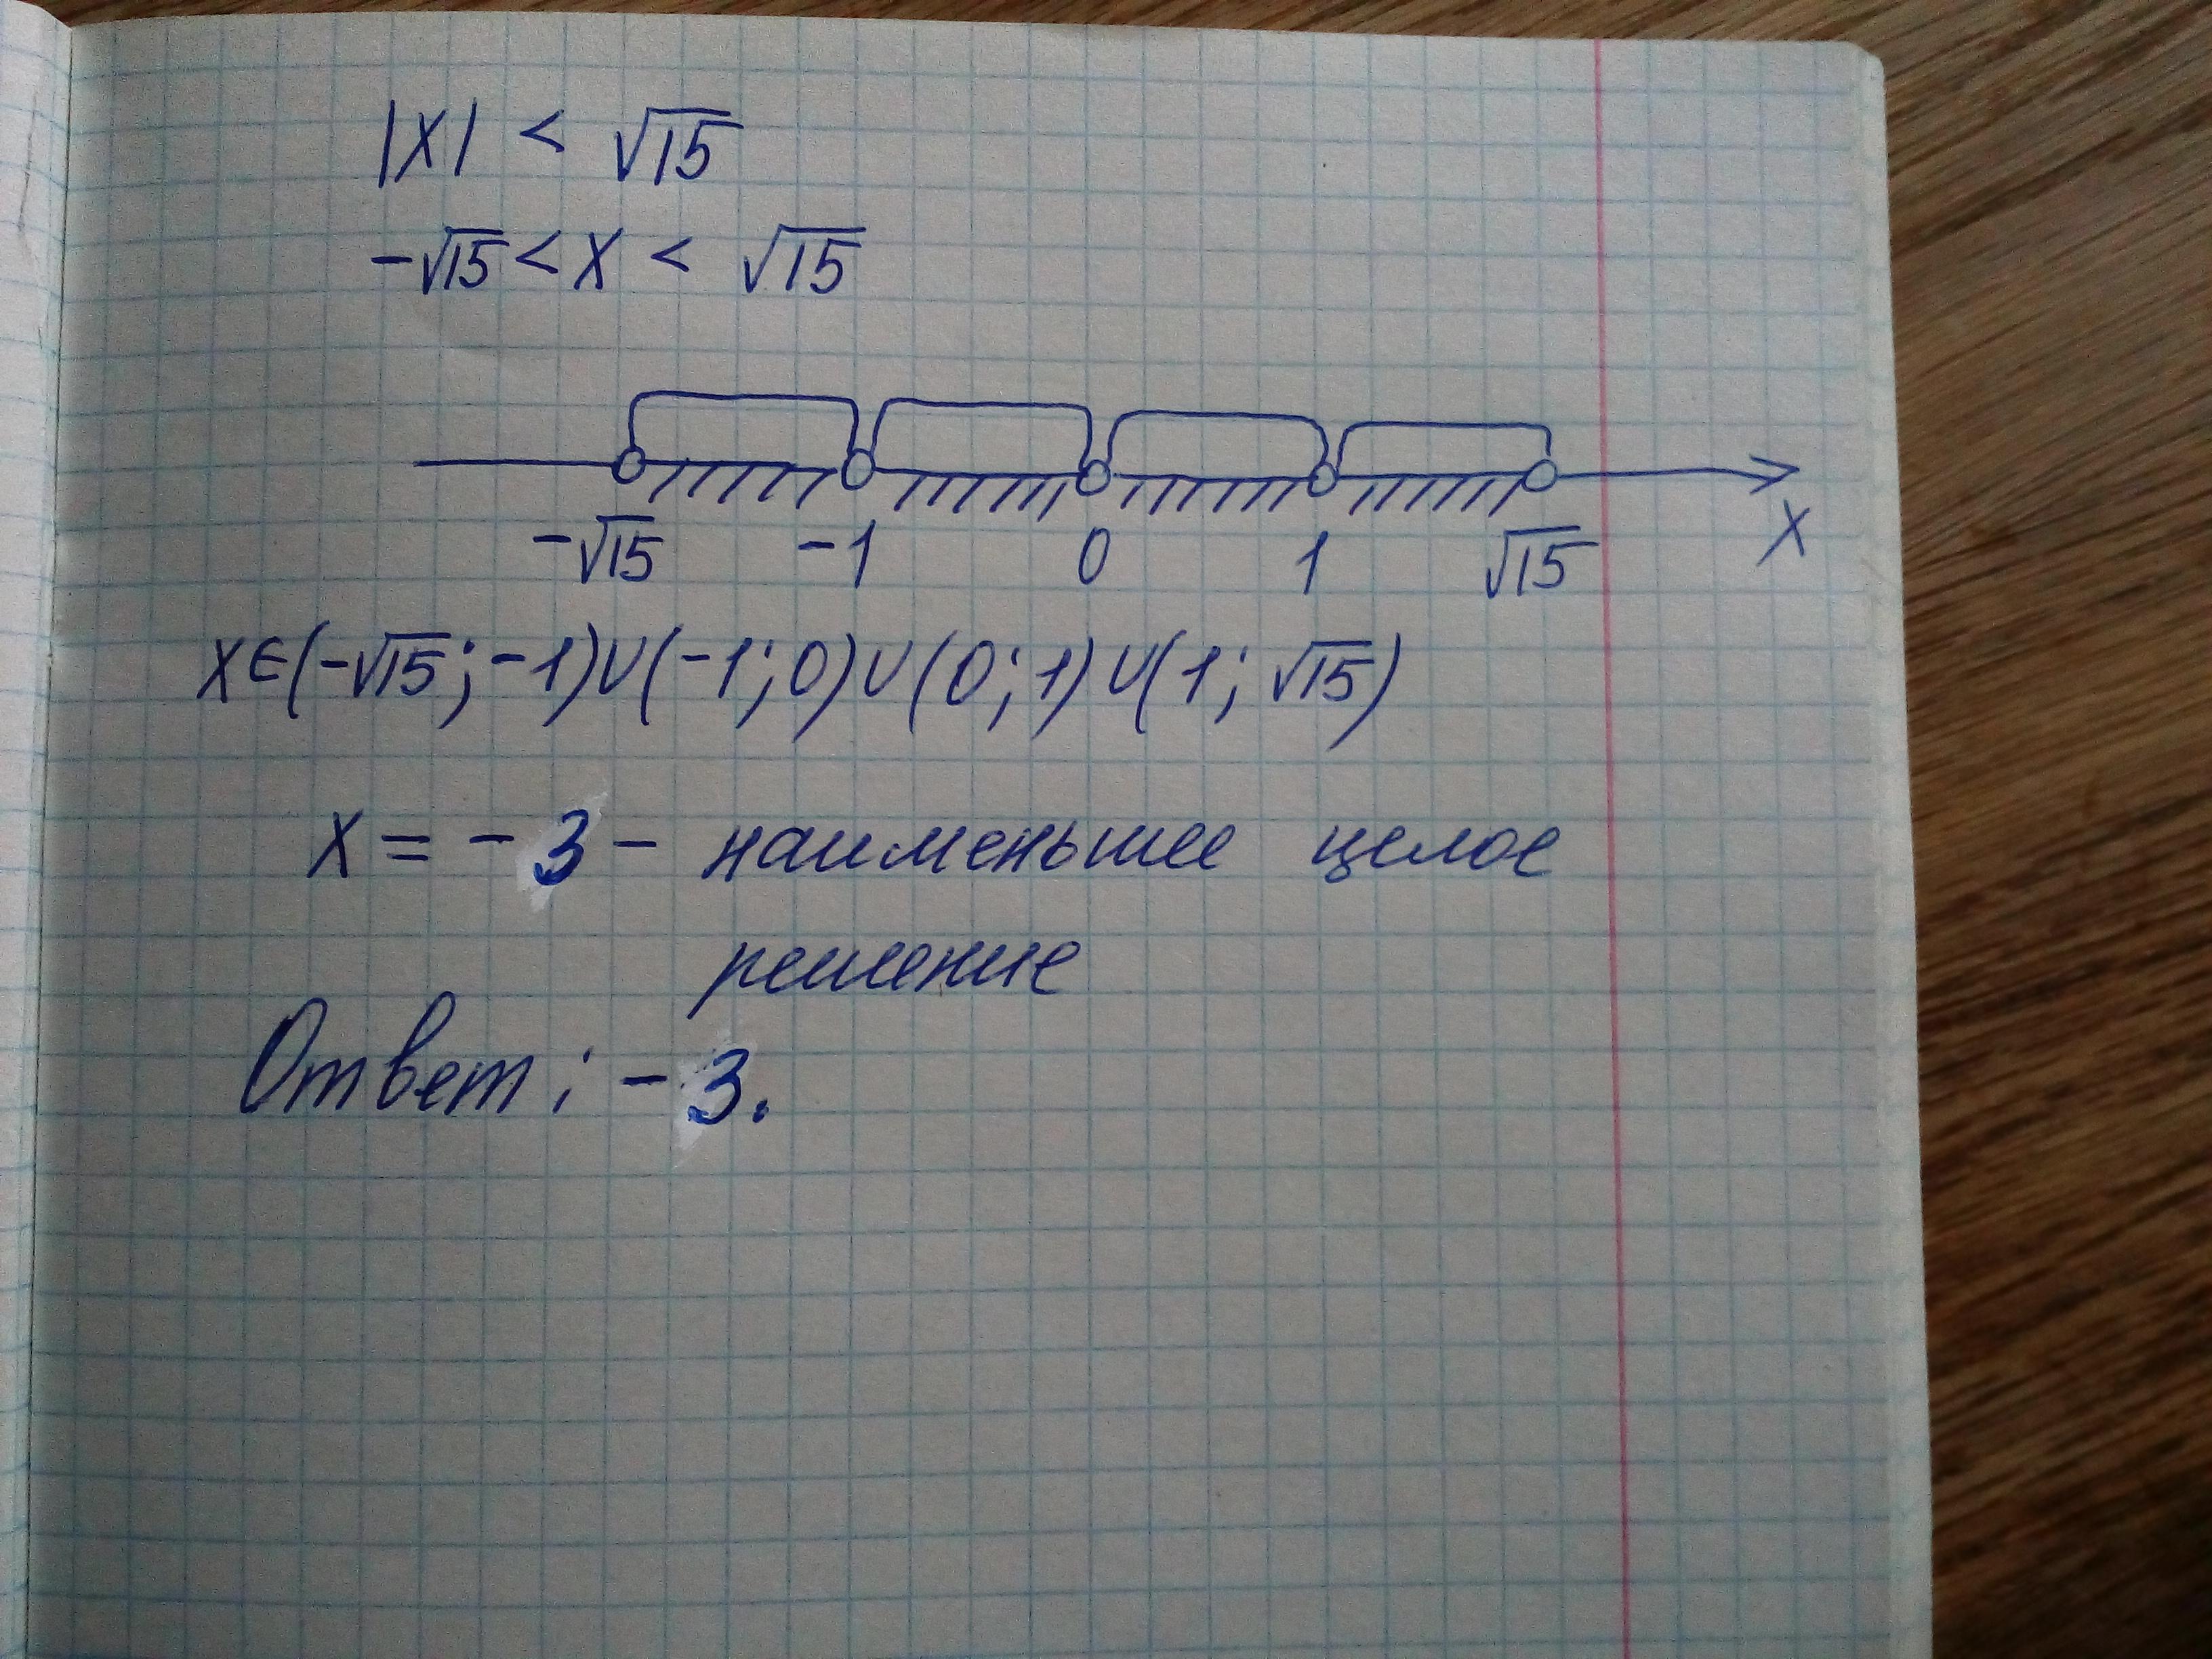 |X| < √15
-√15 < X < √15
-√15 -1 0 1 √15 X
X∈(-√15; -1)∪(-1; 0)∪(0; 1)∪(1; √15)
X = -3 - наименьшее целое
решение
Ответ: -3.